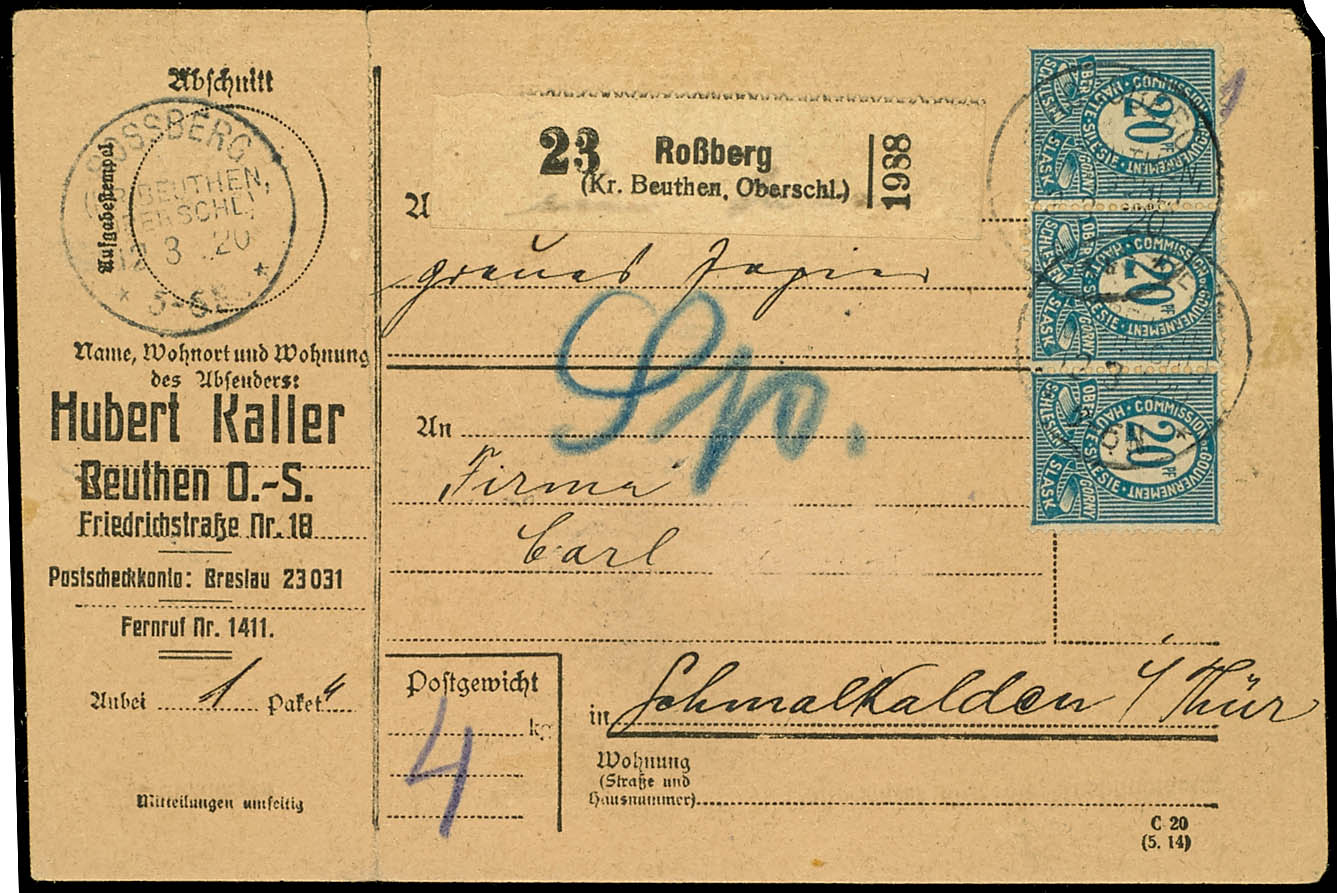 Abschnitt
ROSSBERG
BEUTHEN,
OBERSCHL.)
12 3 .20
Aufgabestempel
Name, Wohnort und Wohnung
des Absenders:
Hubert Kaller
Beuthen O.-S.
Friedrichstraße Nr. 18
Postscheckkonto: Breslau 23031
Fernruf Nr. 1411.
Anbei 1 Paket
Mitteilungen umseitig
23 Roßberg
(Kr. Beuthen, Oberschl.)
1988
A
graues Papier
An
Firma
Carl
Postgewicht
kg
4
in Schmalkalden i/Thür
Wohnung
(Straße und
Hausnummer)
C 20
(5. 14)
COMMISSION DE GOUVERNEMENT • HAUTE SILESIE •
20 PF
OBER SCHLESIEN
GORNY ŚLASK
COMMISSION DE GOUVERNEMENT • HAUTE SILESIE •
20 PF
OBER SCHLESIEN
GORNY ŚLASK
COMMISSION DE GOUVERNEMENT • HAUTE SILESIE •
20 PF
OBER SCHLESIEN
GORNY ŚLASK